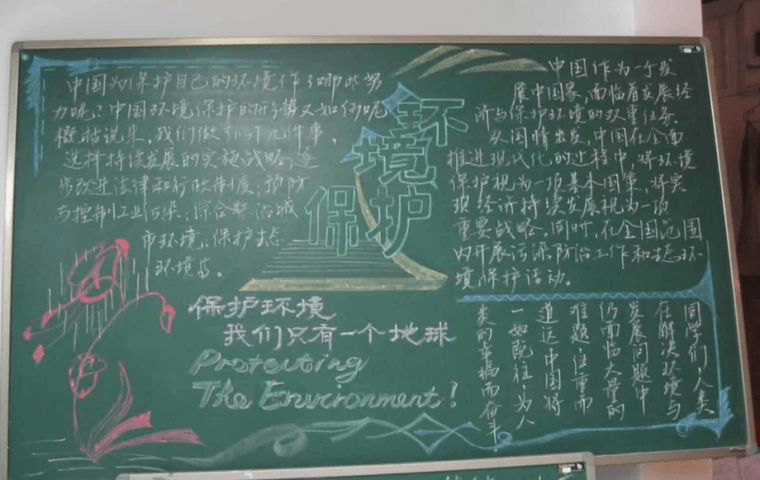 中国为保护自己的环境作了哪些努
力呢?中国环境保护的形势又如何呢
概括说来,我们做了以下几件事,
选择持续发展的实施战略;逐
步改进法律和行政制度;预防
与控制工业污染;综合整治城
市环境;保护生态
环境等。
环
境
保护
保护环境
我们只有一个地球
Protecting
The Environment!
中国作为一个发
展中国家,面临着发展经
济与保护环境的双重任务.
从国情出发,中国在全面
推进现代化的过程中,将环境
保护视为一项基本国策,将实
现经济持续发展视为一项
重要战略,同时,在全国范围
内开展污染防治工作和生态环
境保护活动。
同学们!人类
在解决环境与
发展问题中
仍面临大量的
难题任重而
道远中国将
一如既往为人
类的幸福而奋斗